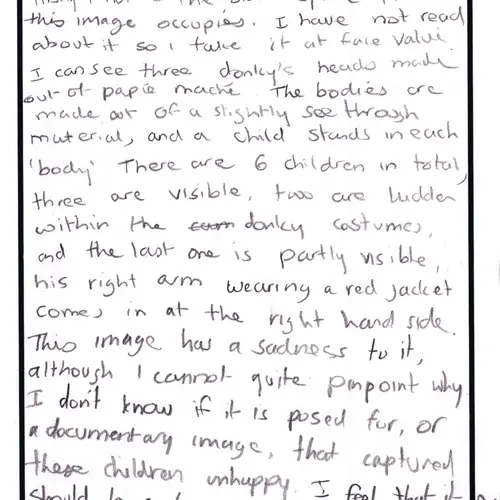 this image occupies. I have not read
about it so i take it at face value.
I can see three donky's heads made
out of papie maché. The bodies are
made out of a slightly see through
material, and a child stands in each
'body' There are 6 children in total,
three are visible, two are hidden
within the donky costumes,
and the last one is partly visible,
his right arm wearing a red jacket
comes in at the right hand side.
This image has a sadness to it,
although I cannot quite pinpoint why
I don't know if it is posed for, or
a documentary image, that captured
these children unhappy. I feel that it
should be